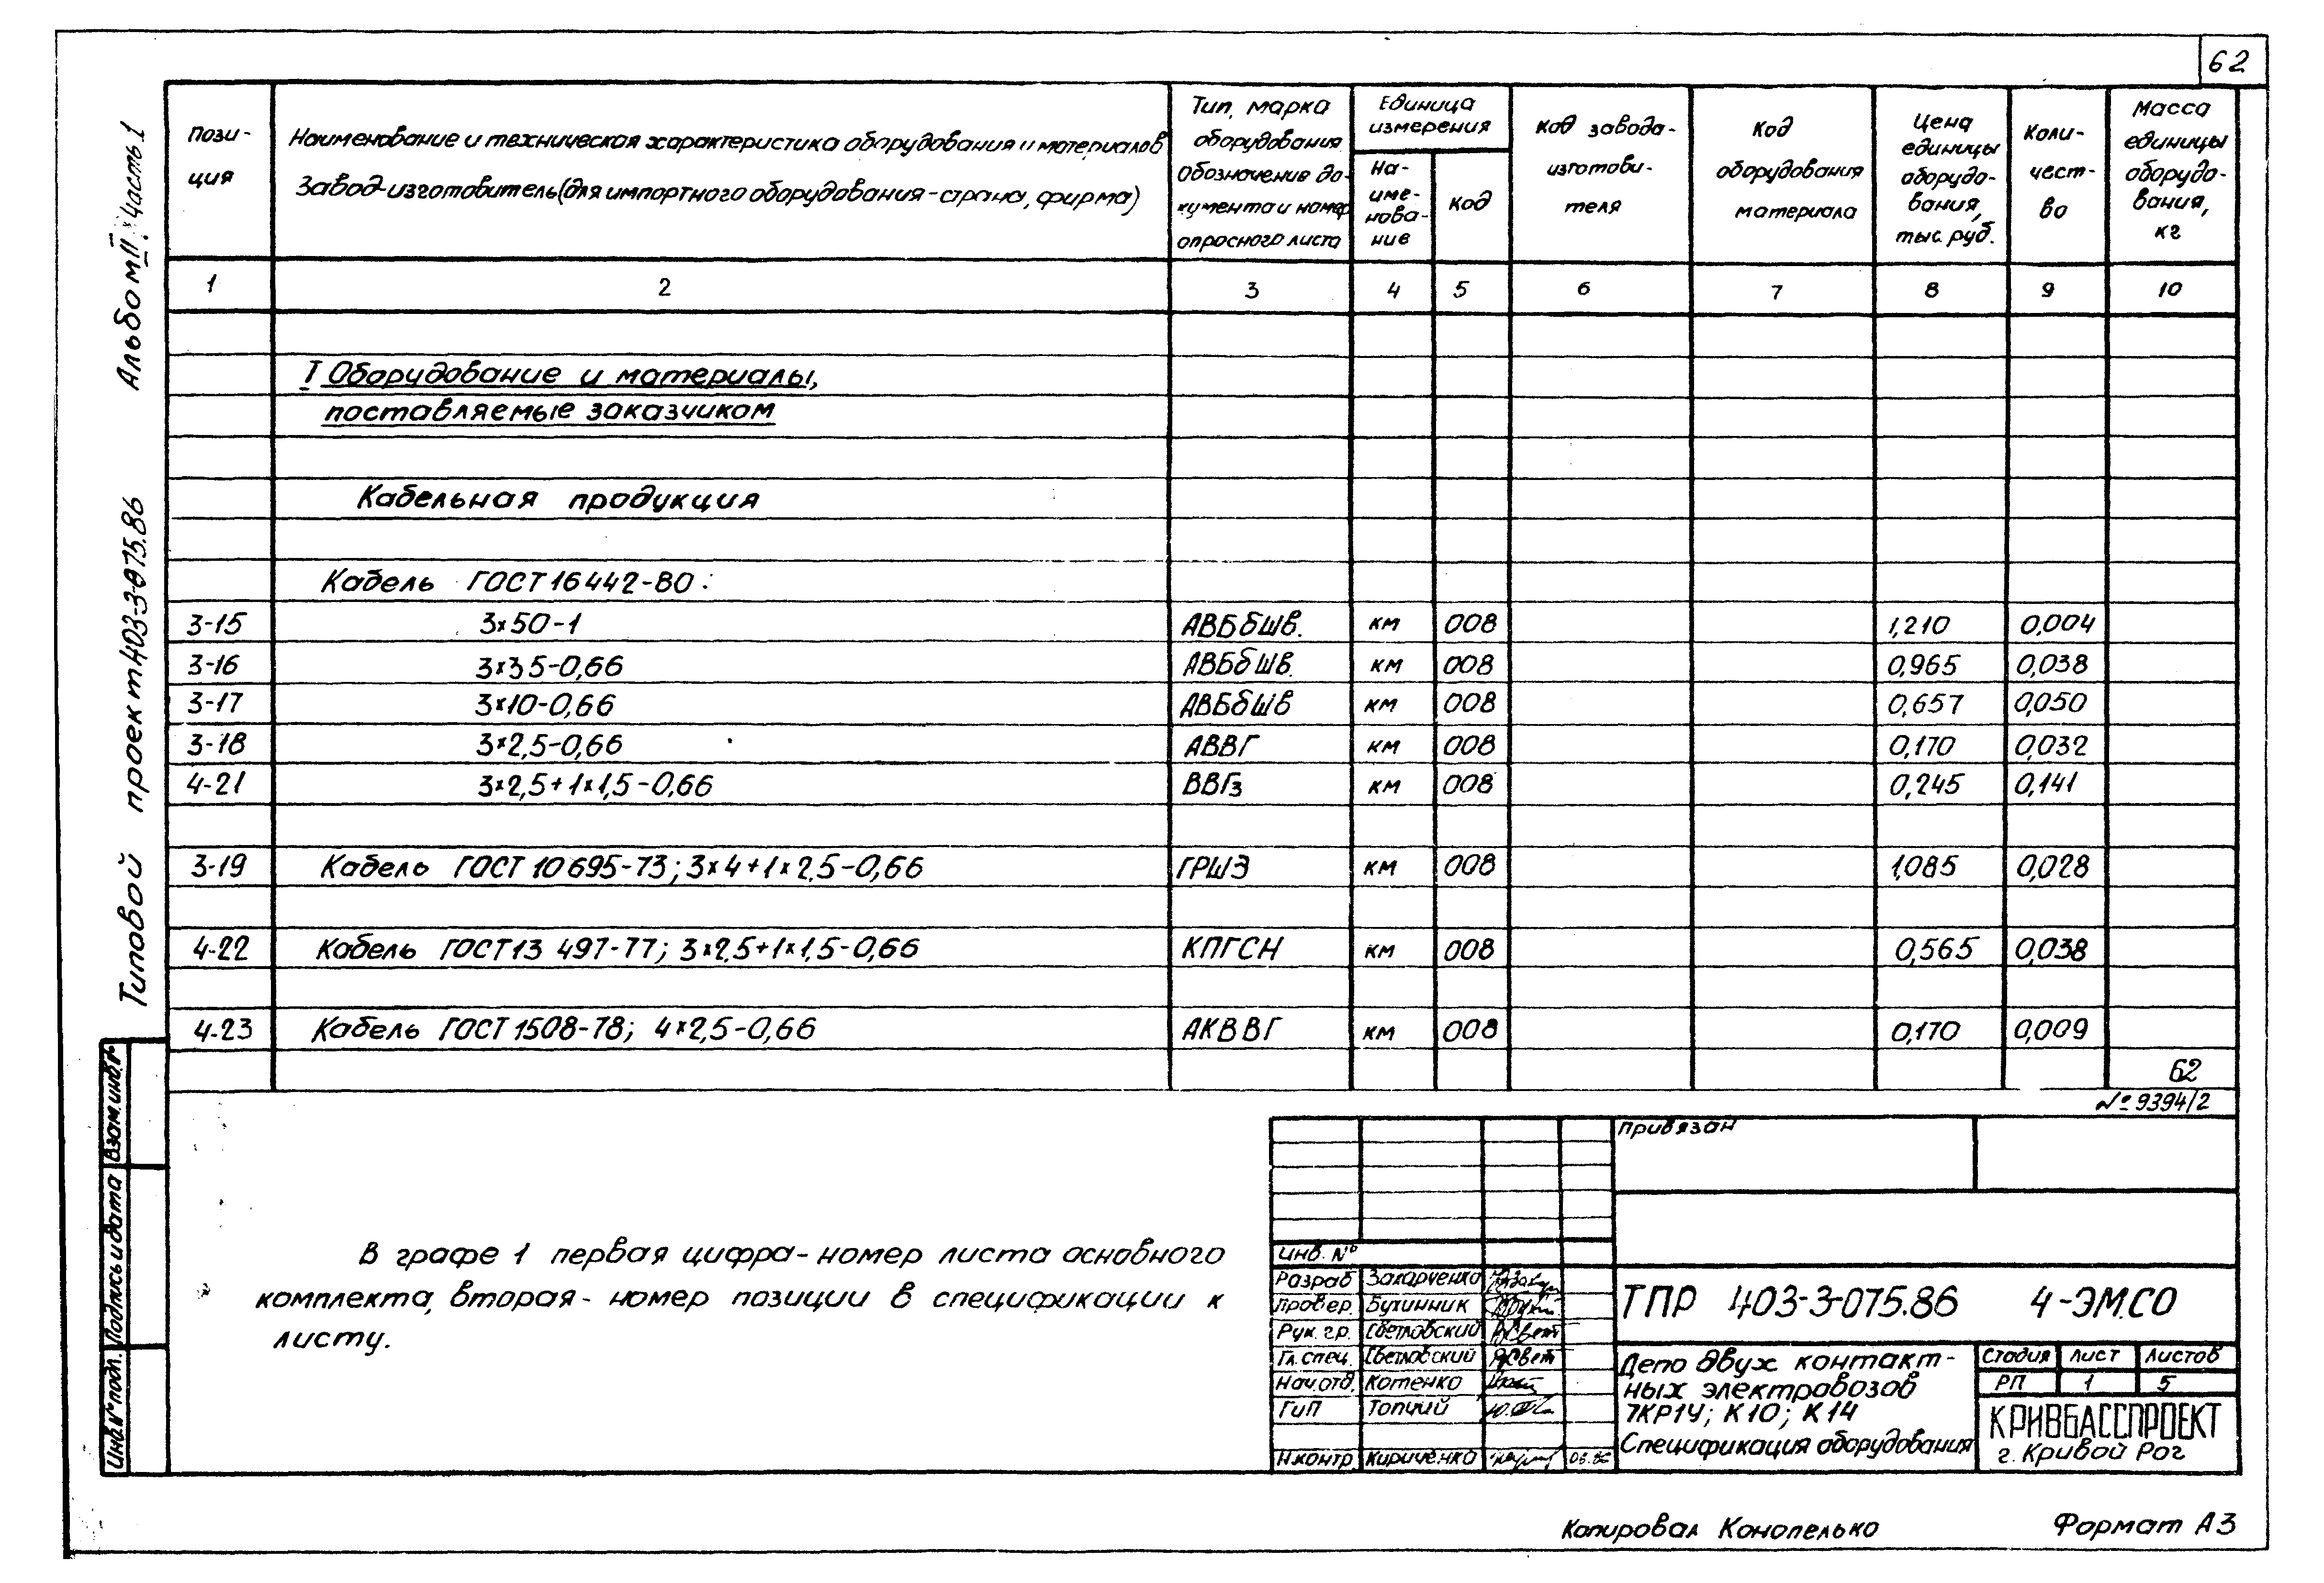 62
Альбом II. Часть 1
Типовой проект 403-3-075.86
Пози-
ция
Наименование и техническая характеристика оборудования и материалов
Завод-изготовитель (для импортного оборудования - страна, фирма)
Тип, марка
оборудования
Обозначение до-
кумента и номер
опросного листа
Единица
измерения
На-
име-
нова-
ние
Код
Код завода-
изготови-
теля
Код
оборудования
материала
Цена
единицы
оборудо-
вания,
тыс. руб.
Коли-
чест-
во
Масса
единицы
оборудо-
вания,
кг
1 2 3 4 5 6 7 8 9 10
I Оборудование и материалы,
поставляемые заказчиком
Кабельная продукция
Кабель ГОСТ 16442-80:
3-15 3×50-1 АВБбШв. км 008 1,210 0,004
3-16 3×35-0,66 АВБбШв. км 008 0,965 0,038
3-17 3×10-0,66 АВБбШв км 008 0,657 0,050
3-18 3×2,5-0,66 АВВГ км 008 0,170 0,032
4-21 3×2,5+1×1,5-0,66 ВВГз км 008 0,245 0,141
3-19 Кабель ГОСТ 10695-73; 3×4+1×2,5-0,66 ГРШЭ км 008 1,085 0,028
4-22 Кабель ГОСТ 13 497-77; 3×2,5+1×1,5-0,66 КПГСН км 008 0,565 0,038
4-23 Кабель ГОСТ 1508-78; 4×2,5-0,66 АКВВГ км 008 0,170 0,009
62
№ 9394/2
Взам. инв. №
Подпись и дата
Инв. № подл.
В графе 1 первая цифра - номер листа основного
комплекта, вторая - номер позиции в спецификации к
листу.
Привязан
Инв. №
Разраб. Захарченко
Провер. Бухинник
Рук. гр. Светловский
Гл. спец. Светловский
Нач. отд. Котенко
ГиП Топчий
Н.контр. Кириченко 06.86
ТПР 403-3-075.86 4-ЭМ.СО
Депо двух контакт-
ных электровозов
7КР1У; К10; К14
Спецификация оборудования
Стадия Лист Листов
РП 1 5
КРИВБАССПРОЕКТ
г. Кривой Рог
Копировал Конопелько Формат А3